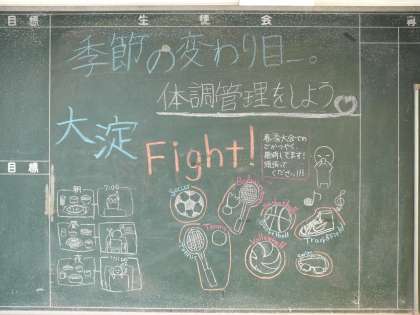 目標
生徒会
季節の変わり目…。
体調管理をしよう
大淀
Fight!
春季大会での
ごかつやく
期待してます!
頑張って
ください!!!
目標
朝
7:00
昼
夜
Soccer
Tennis
Basketball
Volleyball
Track&Field